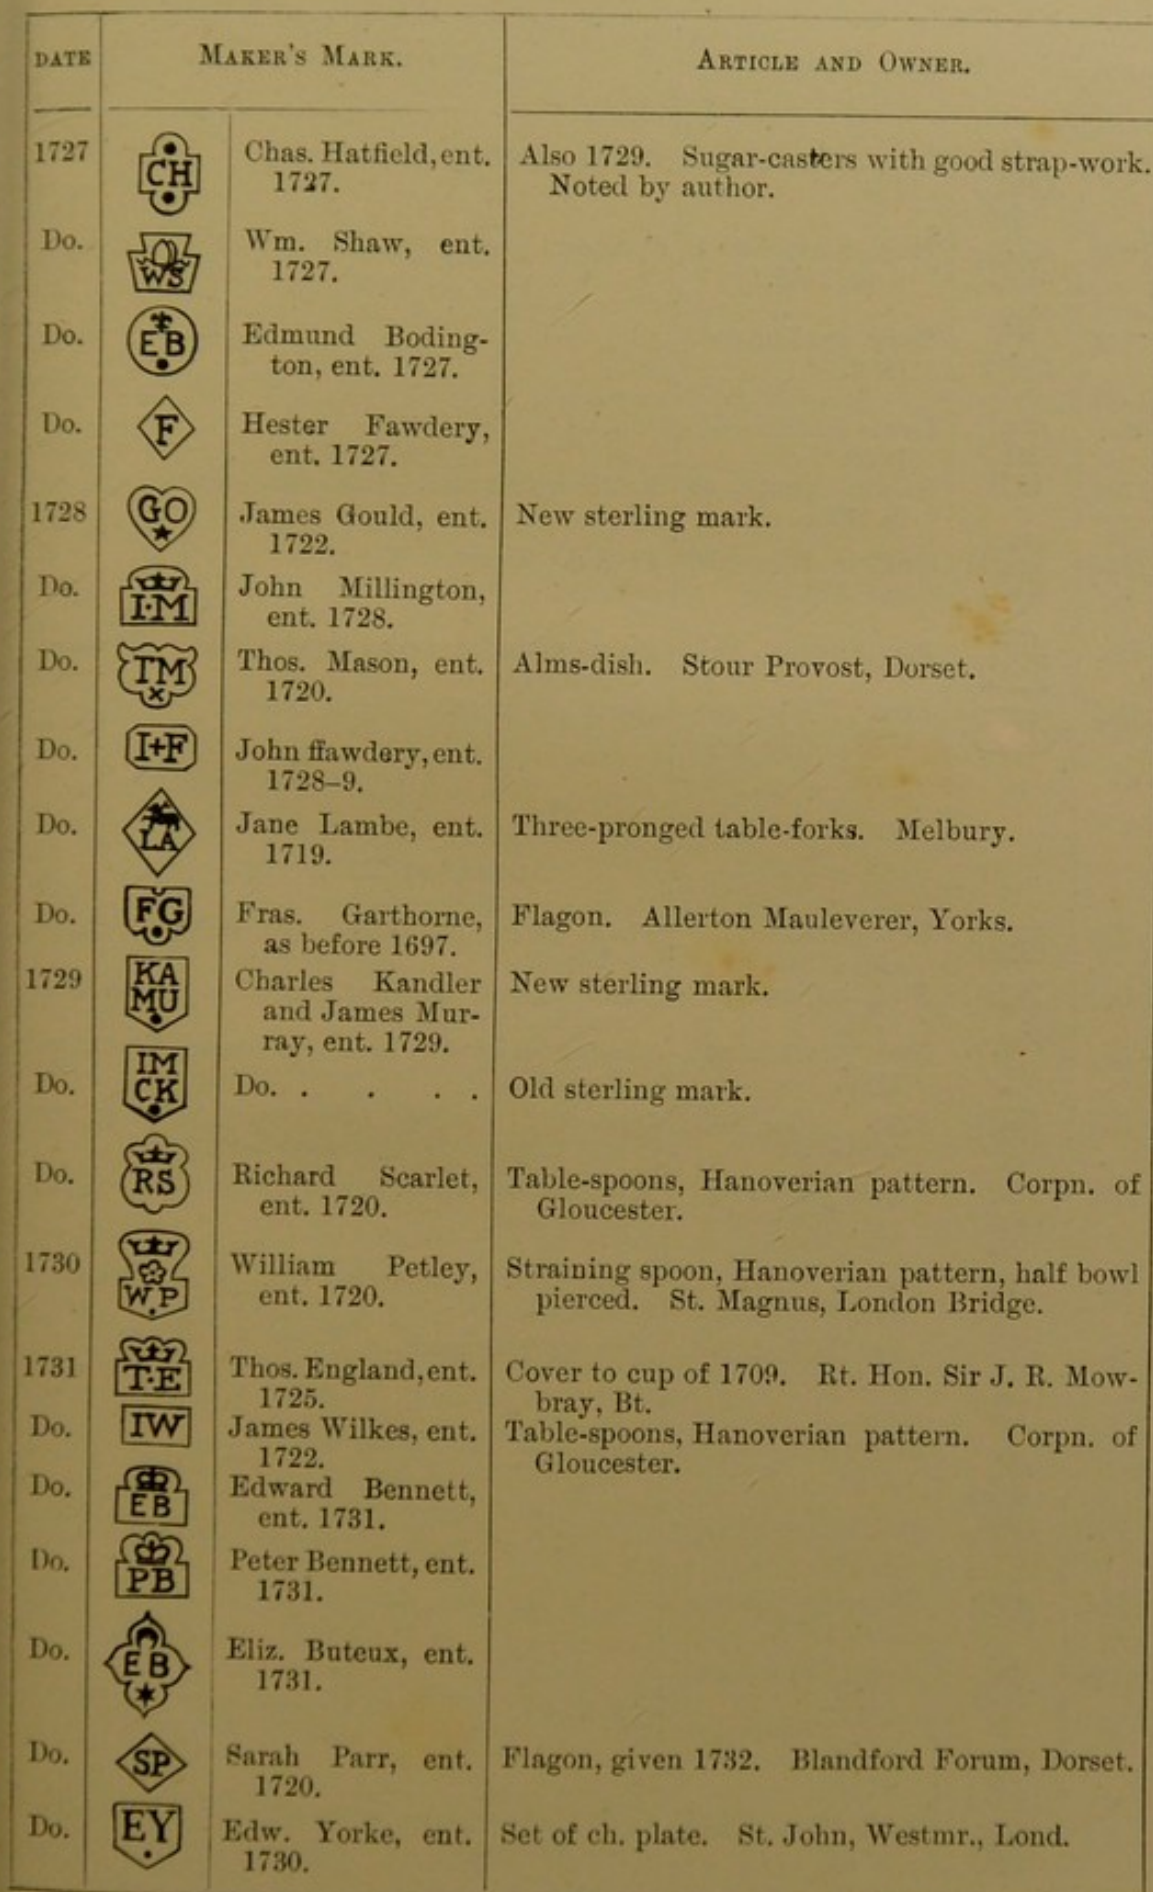 DATE MAKER'S MARK. ARTICLE AND OWNER.
1727 CH Chas. Hatfield, ent. Also 1729. Sugar-casters with good strap-work.
1727. Noted by author.
Do. WS Wm. Shaw, ent.
1727.
Do. EB Edmund Boding-
ton, ent. 1727.
Do. F Hester Fawdery,
ent. 1727.
1728 GO James Gould, ent. New sterling mark.
1722.
Do. I·M John Millington,
ent. 1728.
Do. TM Thos. Mason, ent. Alms-dish. Stour Provost, Dorset.
1720.
Do. I+F John ffawdery, ent.
1728–9.
Do. LA Jane Lambe, ent. Three-pronged table-forks. Melbury.
1719.
Do. FG Fras. Garthorne, Flagon. Allerton Mauleverer, Yorks.
as before 1697.
1729 KA Charles Kandler New sterling mark.
MU and James Mur-
ray, ent. 1729.
IM
Do. CK Do. . . . . Old sterling mark.
Do. RS Richard Scarlet, Table-spoons, Hanoverian pattern. Corpn. of
ent. 1720. Gloucester.
1730 William Petley, Straining spoon, Hanoverian pattern, half bowl
W.P ent. 1720. pierced. St. Magnus, London Bridge.
1731 T·E Thos. England, ent. Cover to cup of 1709. Rt. Hon. Sir J. R. Mow-
1725. bray, Bt.
Do. IW James Wilkes, ent. Table-spoons, Hanoverian pattern. Corpn. of
1722. Gloucester.
Do. EB Edward Bennett,
ent. 1731.
Do. PB Peter Bennett, ent.
1731.
Do. EB Eliz. Buteux, ent.
1731.
Do. SP Sarah Parr, ent. Flagon, given 1732. Blandford Forum, Dorset.
1720.
Do. EY Edw. Yorke, ent. Set of ch. plate. St. John, Westmr., Lond.
1730.